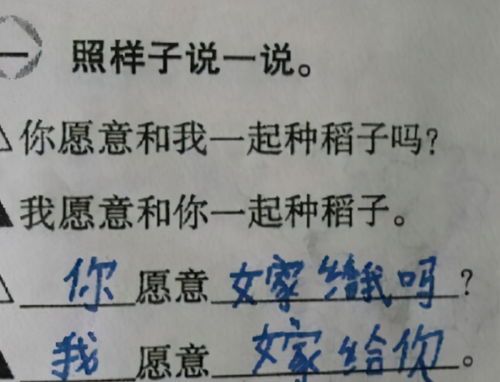 一 照样子说一说。
△你愿意和我一起种稻子吗?
▲我愿意和你一起种稻子。
△你愿意嫁给我吗?
▲我愿意嫁给你。